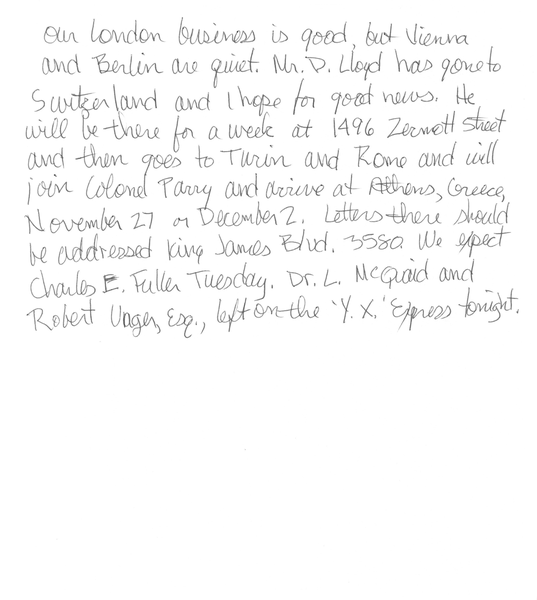 Our London business is good, but Vienna
and Berlin are quiet. Mr. D. Lloyd has gone to
Switzerland and I hope for good news. He
will be there for a week at 1496 Zermott Street
and then goes to Turin and Rome and will
join Colonel Parry and arrive at Athens, Greece,
November 27 or December 2. Letters there should
be addressed King James Blvd. 3580. We expect
Charles E. Fuller Tuesday. Dr. L. McQuaid and
Robert Unger, Esq., left on the 'Y. X.' Express tonight.